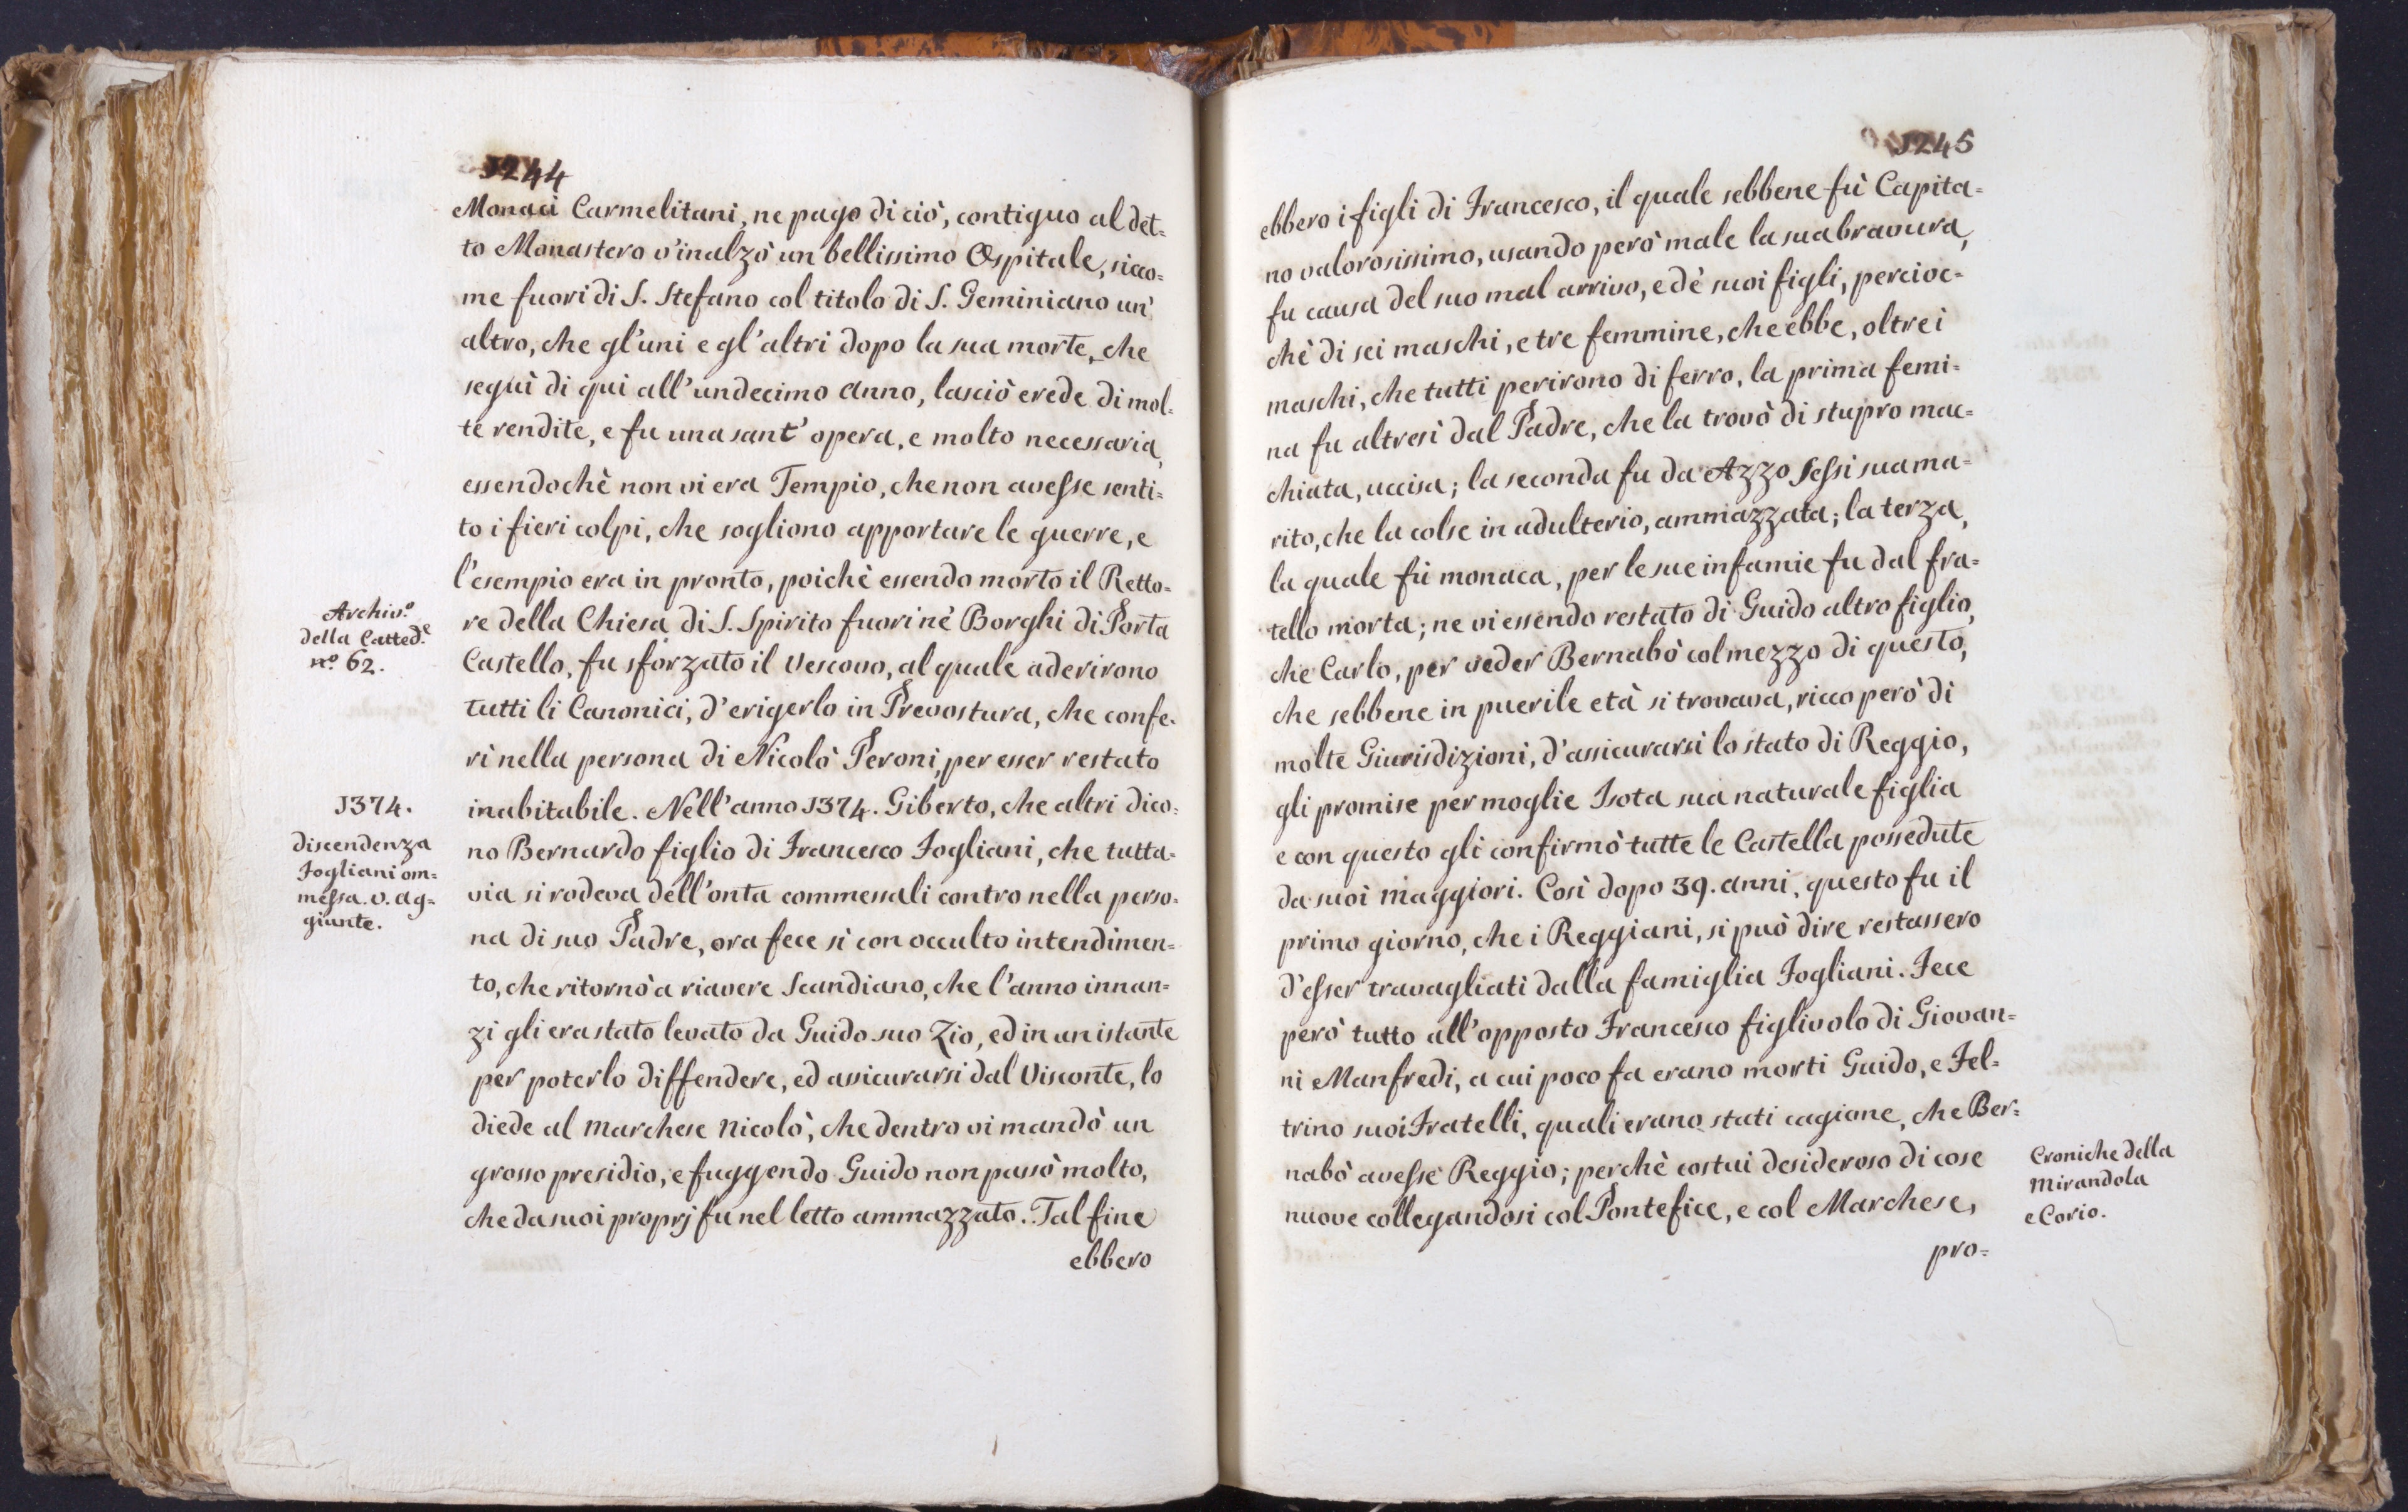 1244
Monaci Carmelitani, ne pago di ciò, contiguo al det=
to Monastero v'inalzò un bellissimo Ospitale, sicco=
me fuori di S. Stefano col titolo di S. Geminiano un'
altro, che gl'uni e gl'altri dopo la sua morte, che
seguì di qui all'undecimo anno, lasciò erede di mol=
te rendite, e fu una sant'opera, e molto necessaria,
essendochè non vi era Tempio, che non avesse senti=
to i fieri colpi, che sogliono apportare le guerre, e
l'esempio era in pronto, poichè essendo morto il Retto=
re della Chiesa di S. Spirito fuori nè Borghi di Porta
Castello, fu sforzato il Vescovo, al quale aderirono
tutti li Canonici, d'erigerlo in Prevostura, che confe=
rì nella persona di Nicolò Peroni, per esser restato
inabitabile. Nell'anno 1374. Giberto, che altri dico=
no Bernardo figlio di Francesco Fogliani, che tutta=
via si rodeva dell'onta commessali contro nella perso=
na di suo Padre, ora fece sì con occulto intendimen=
to, che ritornò a riavere Scandiano, che l'anno innan=
zi gli era stato levato da Guido suo Zio, ed in un istante
per poterlo diffendere, ed assicurarsi dal Visconte, lo
diede al Marchese Nicolò, che dentro vi mandò un
grosso presidio, e fuggendo Guido non passò molto,
che da suoi proprj fu nel letto ammazzato. Tal fine
ebbero
Archiv.º
della Catted.e
nº. 62.
1374.
discendenza
Fogliani om=
messa. v. ag=
giunte.
1245
ebbero i figli di Francesco, il quale sebbene fù Capita=
no valorosissimo, usando però male la sua bravura,
fu causa del suo mal arrivo, e dè suoi figli, percioc=
chè di sei maschi, e tre femmine, che ebbe, oltre i
maschi, che tutti perirono di ferro, la prima femi=
na fu altresì dal Padre, che la trovò di stupro mac=
chiata, uccisa; la seconda fu da Azzo Sessi sua ma=
rito, che la colse in adulterio, ammazzata; la terza,
la quale fù monaca, per le sue infamie fu dal fra=
tello morta; ne vi essendo restato di Guido altro figlio,
che Carlo, per veder Bernabò col mezzo di questo,
che sebbene in puerile età si trovava, ricco però di
molte Giurisdizioni, d'assicurarsi lo stato di Reggio,
gli promise per moglie Isota sua naturale figlia
e con questo gli confirmò tutte le Castella possedute
da suoi maggiori. Così dopo 39. anni, questo fu il
primo giorno, che i Reggiani, si può dire restassero
d'esser travagliati dalla famiglia Fogliani. Fece
però tutto all'opposto Francesco figlivolo di Giovan=
ni Manfredi, a cui poco fa erano morti Guido, e Fel=
trino suoi Fratelli, quali erano stati cagione, che Ber=
nabò avesse Reggio; perchè costui desideroso di cose
nuove collegandosi col Pontefice, e col Marchese,
pro=
Croniche della
Mirandola
e Corio.